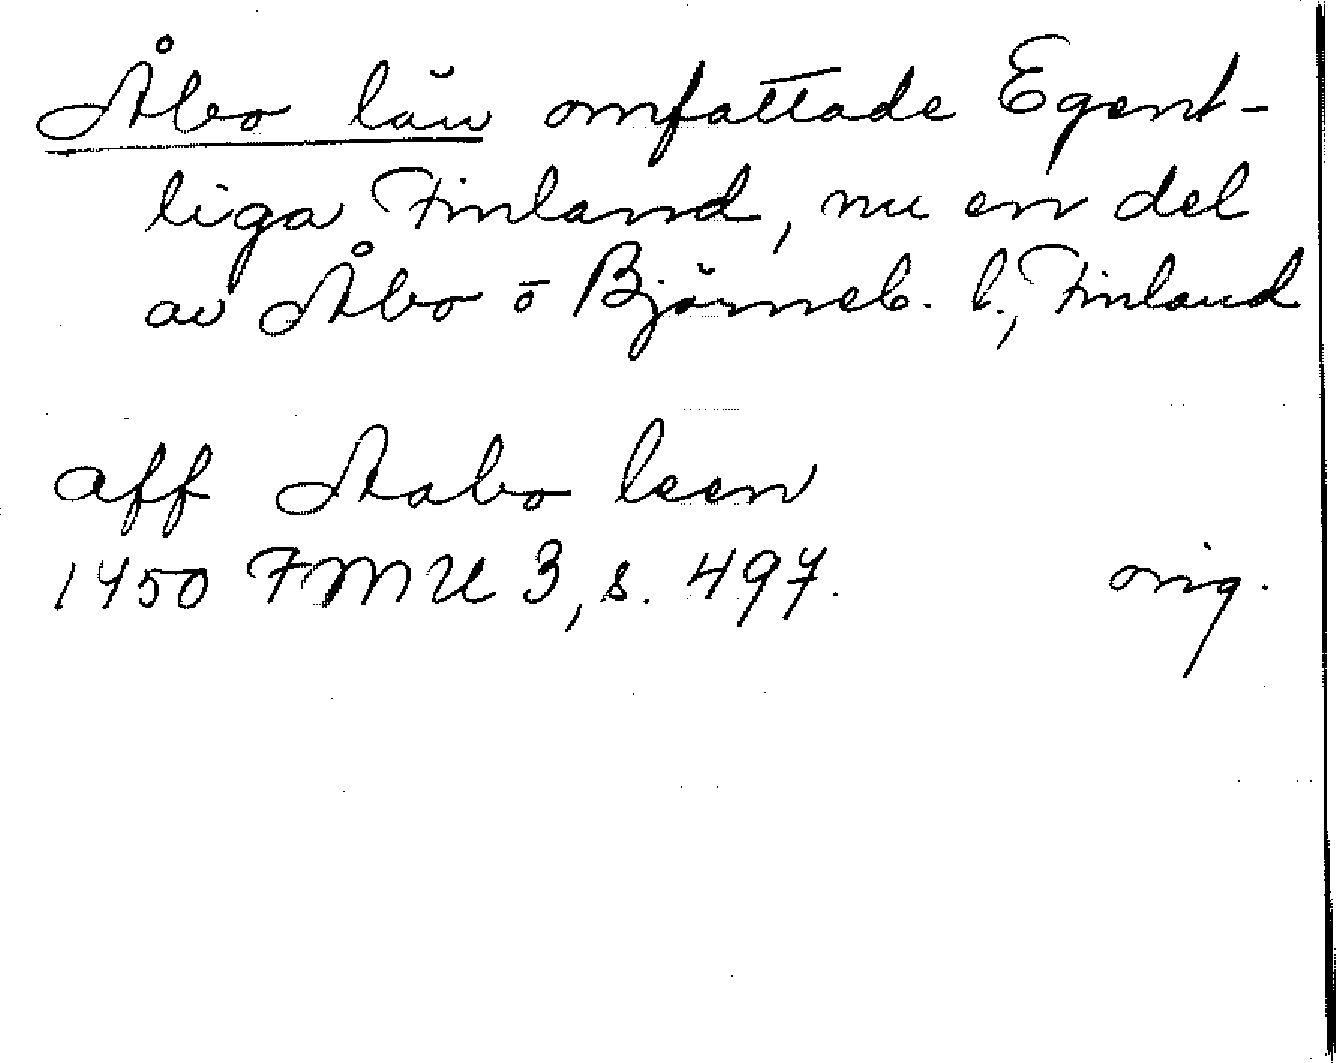 Åbo län omfattade Egent-
liga Finland, nu en del
av Åbo o Björneb. l., Finland
aff Aabo leen
1450 FMU 3, s. 497. orig.